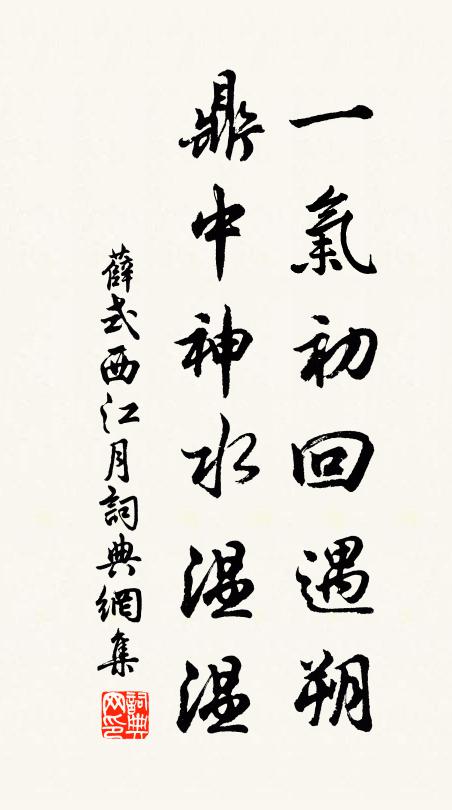 一氣初回遇朔
鼎中神水溫溫
薛式西江月詞典網集
詞典網印